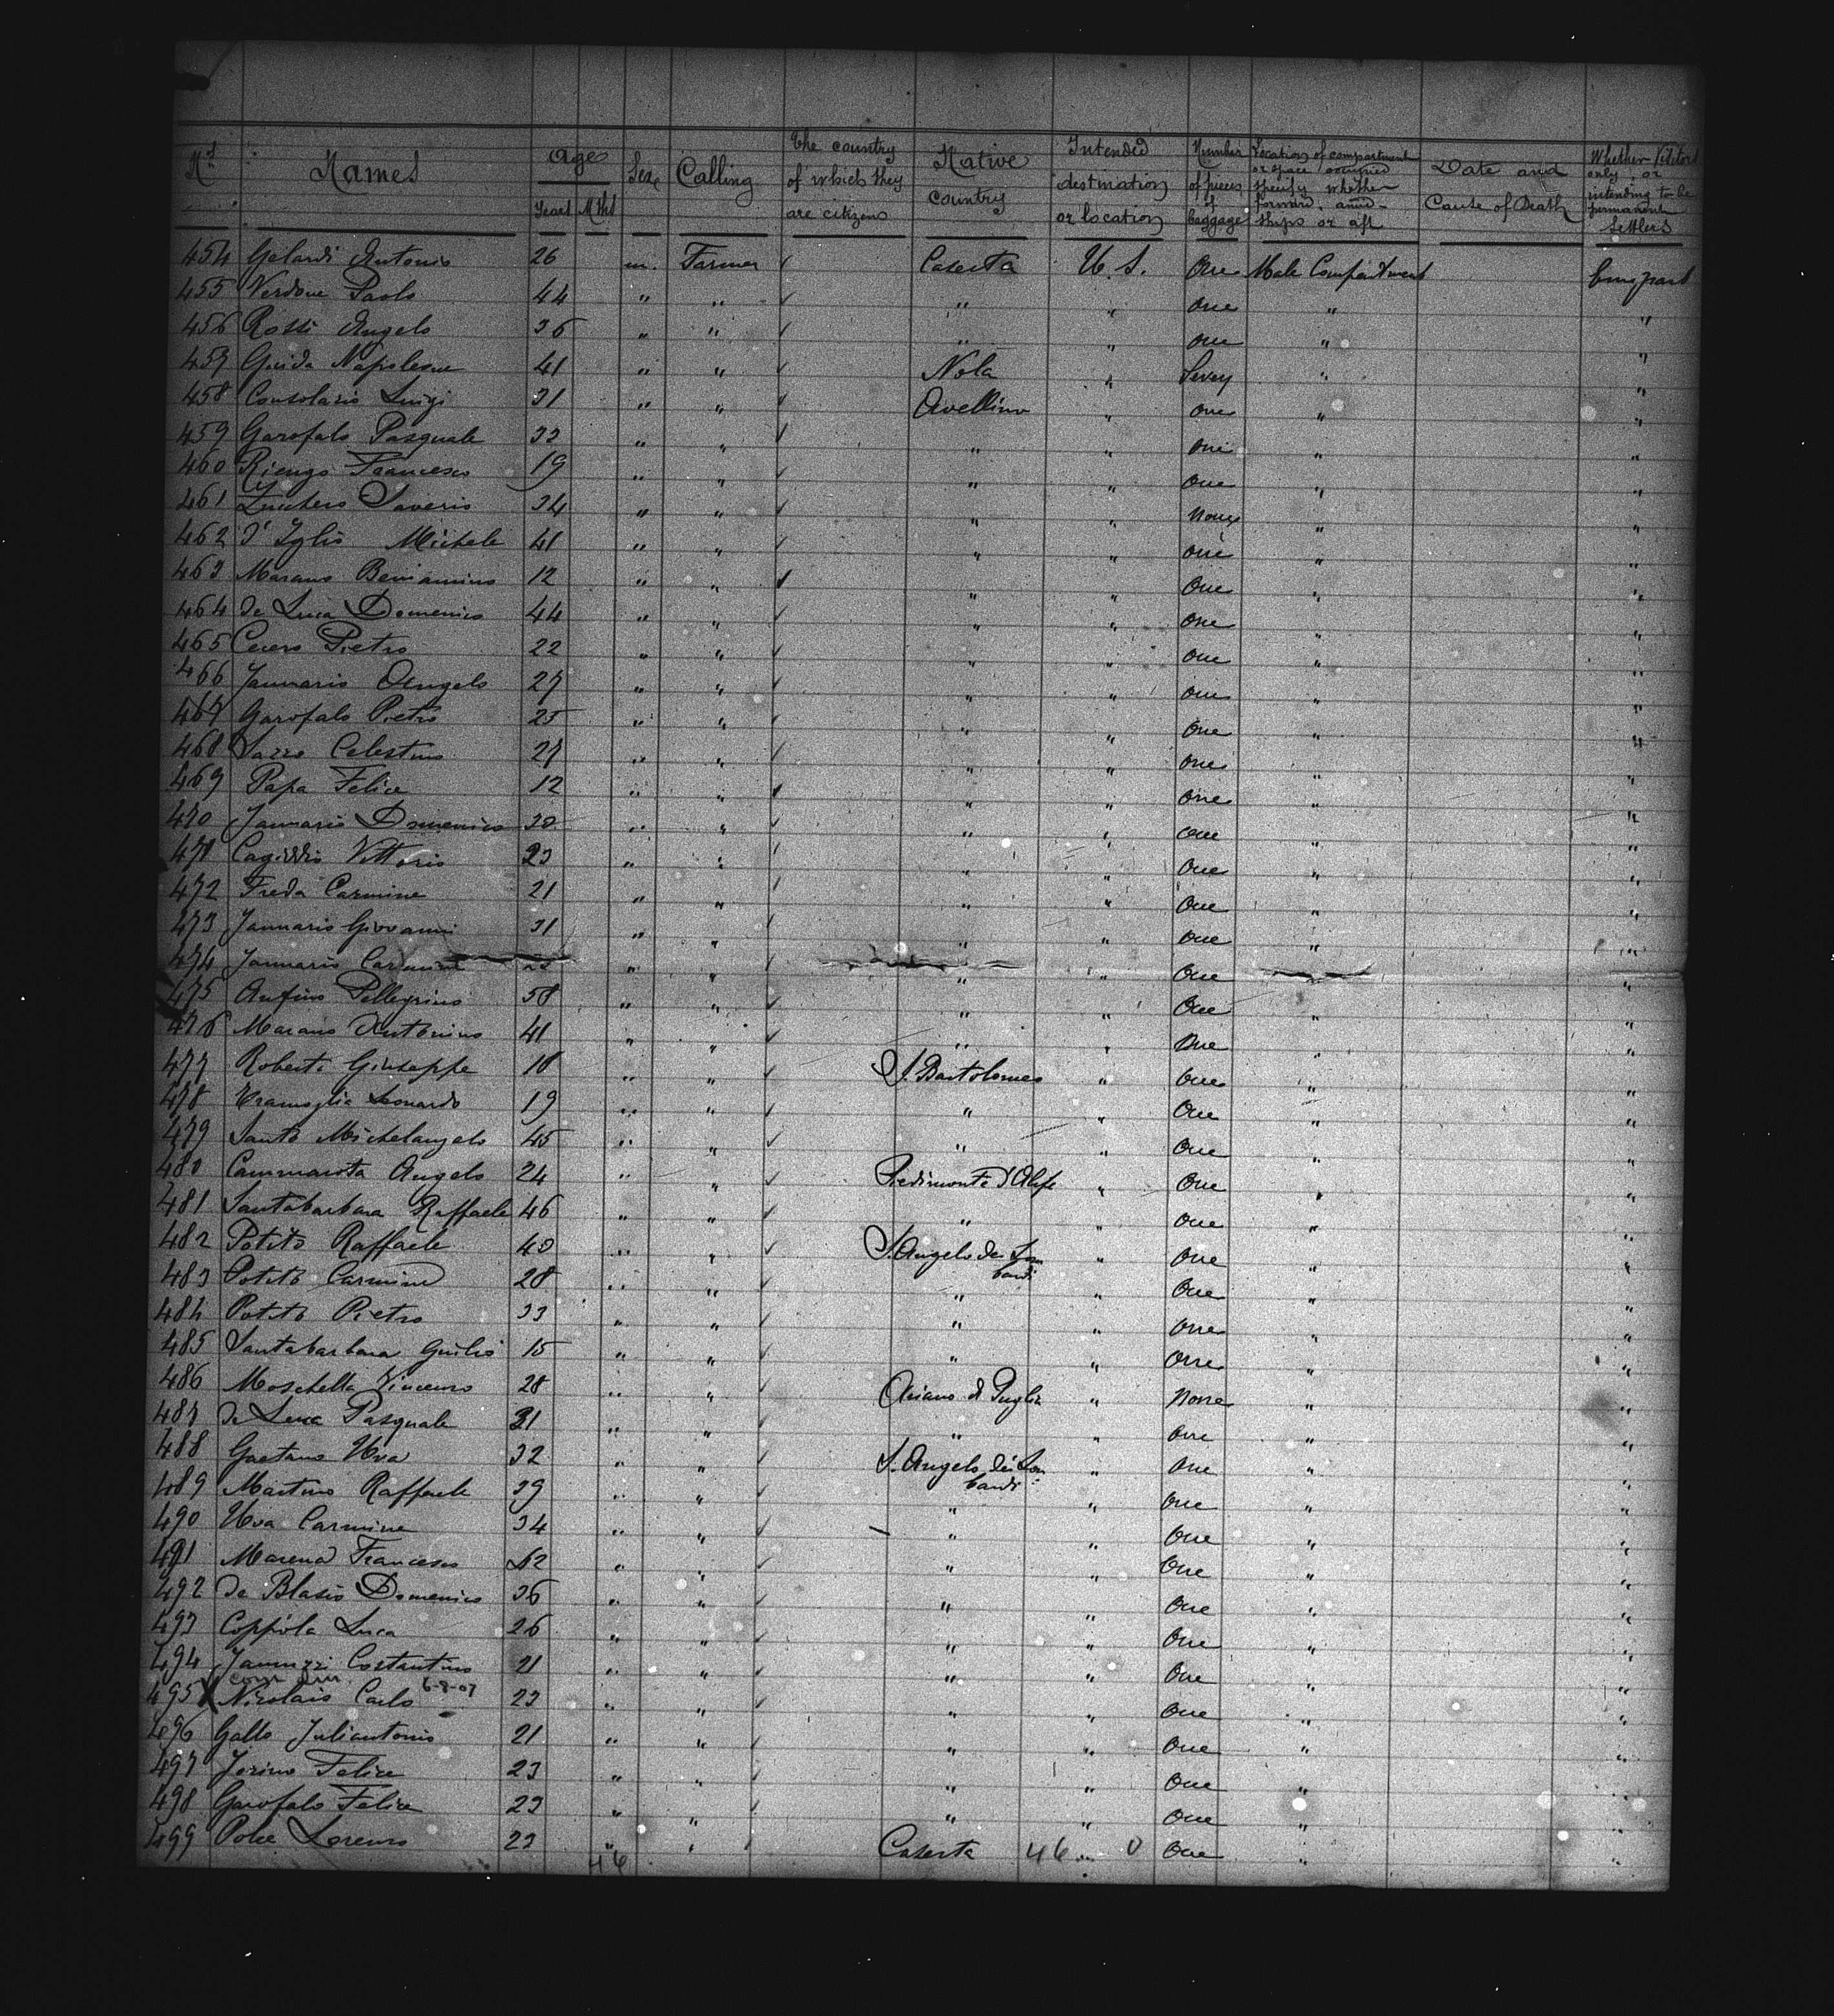 No. Names Age Sex Calling The country of which they are citizens Native country Intended destination or location Number of pieces of baggage Location of compartment or space occupied specify whether forward, amidships or aft Date and Cause of Death Whether Visitors only, or intending to be permanent Settlers
Years Mths
454 Gelardi Antonio 26 m. Farmer ✓ Caserta U. S. One Male Compartment Emigrant
455 Verdone Paolo 44 " " ✓ " " One " "
456 Rossi Angelo 36 " " ✓ " " One " "
457 Guida Napoleone 41 " " ✓ Nola " " "
458 Consolazio Luigi 31 " " ✓ Avellino " One " "
459 Garofalo Pasquale 33 " " ✓ " " One " "
460 Rienzo Francesco 19 " " ✓ " " One " "
461 Saverio 34 " " ✓ " " None " "
462 Michele 41 " " ✓ " " One " "
463 Marano Beniamino 12 " " ✓ " " One " "
464 de Luca Domenico 44 " " ✓ " " One " "
465 Cecere Pietro 22 " " ✓ " " One " "
466 Jannario Angelo 27 " " ✓ " " One " "
467 Garofalo Pietro 25 " " ✓ " " One " "
468 Celestino 27 " " ✓ " " One " "
469 Papa Felice 12 " " ✓ " " One " "
470 Jannario Domenico 30 " " ✓ " " One " "
471 Vittorio 23 " " ✓ " " One " "
472 Freda Carmine 21 " " ✓ " " One " "
473 Jannario Giovanni 31 " " ✓ " " One " "
474 Jannario Carmine " " ✓ " " One " "
475 Pellegrino 58 " " ✓ " " One " "
476 Marano Antonino 41 " " ✓ " " One " "
477 Roberti Giuseppe 18 " " ✓ S. Bartolomeo " One " "
478 Tramaglia Leonardo 19 " " ✓ " " One " "
479 Santo Michelangelo 45 " " ✓ " " One " "
480 Cammarota Angelo 24 " " ✓ Piedimonte d'Alife " One " "
481 Santabarbara Raffaele 46 " " ✓ " " One " "
482 Potito Raffaele 40 " " ✓ S. Angelo dei Lom " One " "
bardi
483 Potito Carmine 28 " " ✓ " " One " "
484 Potito Pietro 33 " " ✓ " " One " "
485 Santabarbara Giulio 15 " " ✓ " " One " "
486 Moschella Vincenzo 28 " " ✓ Ariano di Puglia " None " "
487 de Luca Pasquale 31 " " ✓ " " One " "
488 Gaetano Uva 32 " " ✓ S. Angelo dei Lom " One " "
bardi
489 Martino Raffaele 39 " " ✓ " " One " "
490 Uva Carmine 34 " " ✓ " " One " "
491 Marena Francesco 42 " " ✓ " " One " "
492 de Blasio Domenico 36 " " ✓ " " One " "
493 Coppola Luca 26 " " ✓ " " One " "
494 Jannuzzi Costantino 21 " " ✓ " " One " "
6-8-07
495 X Nicolais Carlo 23 " " ✓ " " One " "
496 Gallo Juliantonio 21 " " ✓ " " One " "
497 Jorino Felice 23 " " ✓ " " One " "
498 Garofalo Felice 23 " " ✓ " " One " "
499 Polce Lorenzo 23 " " ✓ Caserta 46 " 0 One " "
46